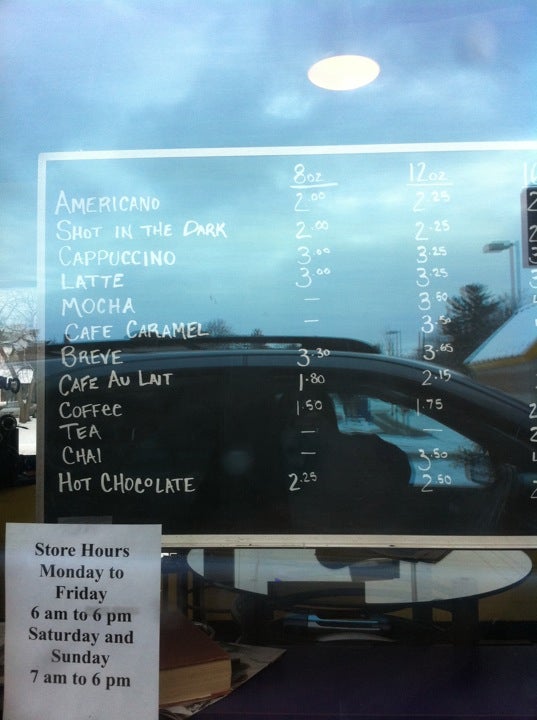 8oz 12oz
AMERICANO 2.00 2.25
SHOT IN THE DARK 2.00 2.25
CAPPUCCINO 3.00 3.25
LATTE 3.00 3.25
MOCHA — 3.50
CAFE CARAMEL — 3.50
BREVE 3.30 3.65
CAFE AU LAIT 1.80 2.15
COFFEE 1.50 1.75
TEA — —
CHAI — 3.50
HOT CHOCOLATE 2.25 2.50
Store Hours
Monday to
Friday
6 am to 6 pm
Saturday and
Sunday
7 am to 6 pm